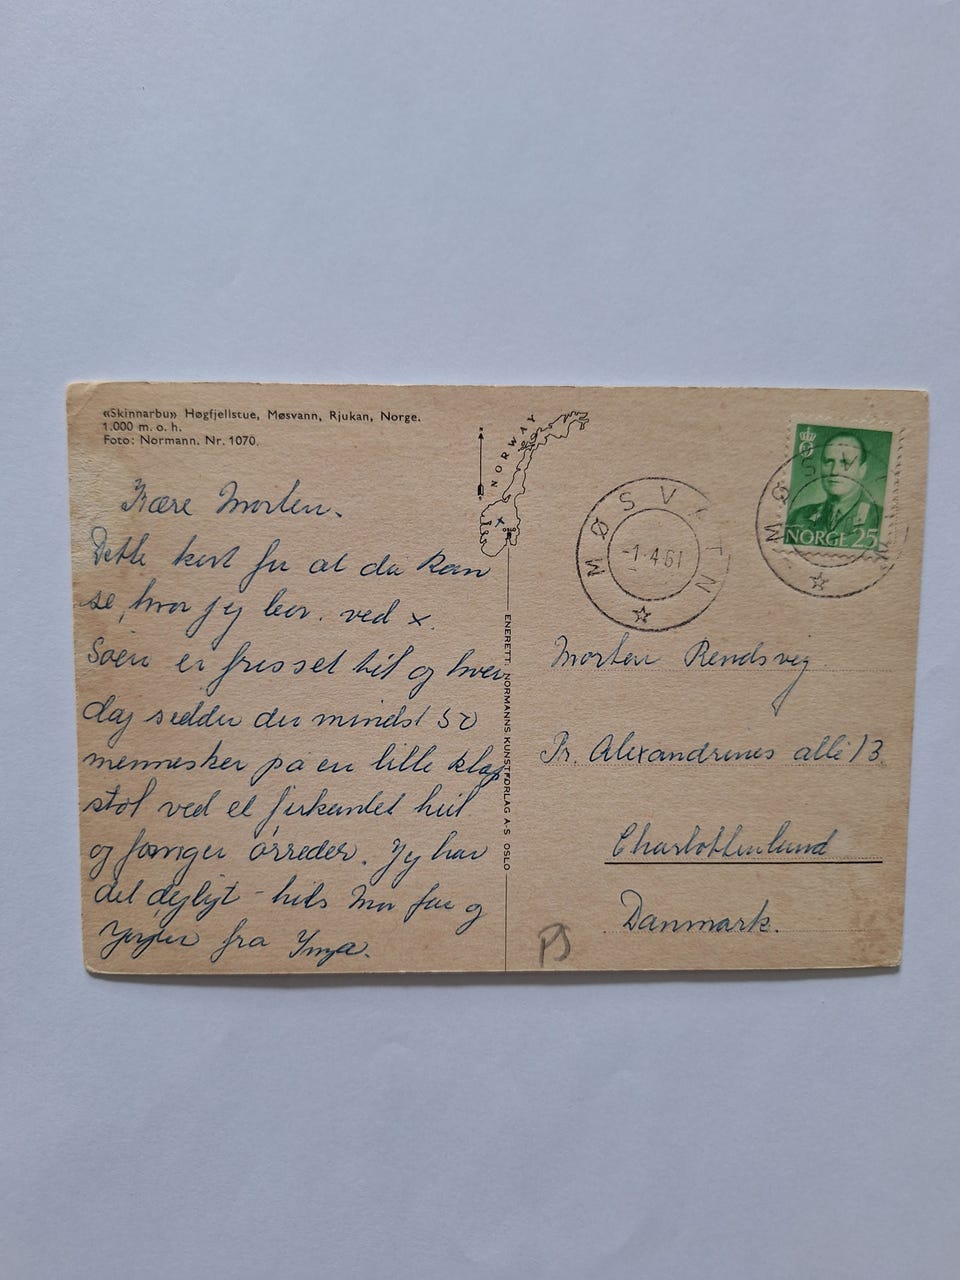 «Skinnarbu» Høgfjellstue, Møsvann, Rjukan, Norge.
1.000 m. o. h.
Foto: Normann. Nr. 1070.
Kære Morten.
Dette kort får at du kan
se, hvor jeg bor. ved x.
Søen er frosset til og hver
dag sidder der mindst 50
mennesker på en lille klap
stol ved et firkantet hul
og fanger ørreder. Jeg har
det dejligt - hils Mor far og
fra
NORWAY
N
OSLO
x
ENERETT: NORMANNS KUNSTFORLAG A-S OSLO
MØSVATN
-1.4.61
MØSVA
NORGE 25
Morten Rendsvig
Pr. Alexandrines allé 13.
Charlottenlund
Danmark.